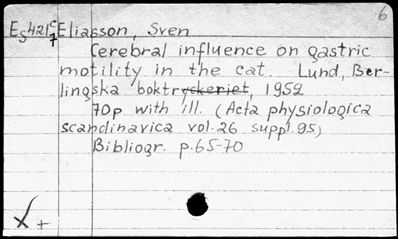 6
Es421c Eliasson, Sven
7
Cerebral influence on gastric
motility in the cat. Lund, Ber-
lingska boktryckeriet, 1952
70p with ill. (Acta physiologica
scandinavica vol. 26 suppl. 95)
Bibliogr. p. 65-70
X +